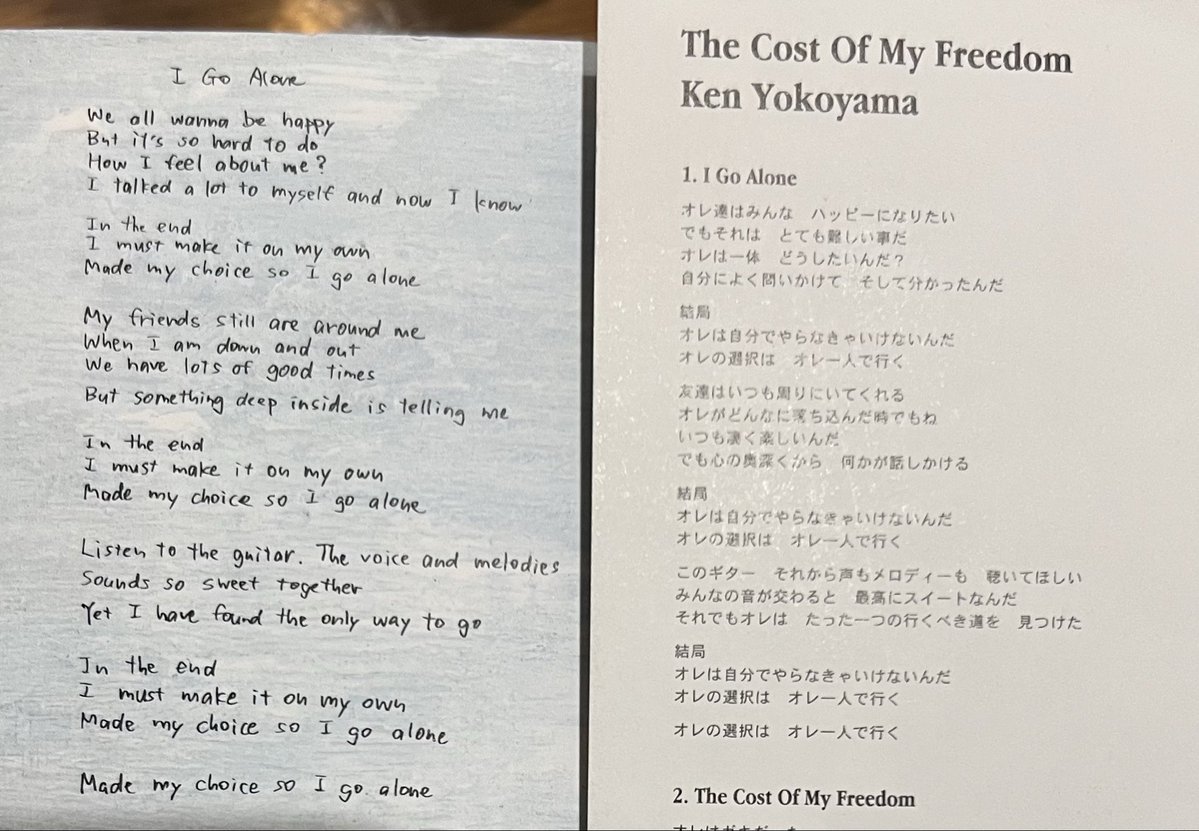 I Go Alone
We all wanna be happy
But it's so hard to do
How I feel about me?
I talked a lot to myself and now I know
In the end
I must make it on my own
Made my choice so I go alone
My friends still are around me
When I am down and out
We have lots of good times
But something deep inside is telling me
In the end
I must make it on my own
Made my choice so I go alone
Listen to the guitar. The voice and melodies
Sounds so sweet together
Yet I have found the only way to go
In the end
I must make it on my own
Made my choice so I go alone
Made my choice so I go alone
The Cost Of My Freedom
Ken Yokoyama
1. I Go Alone
オレ達はみんな　ハッピーになりたい
でもそれは　とても難しい事だ
オレは一体　どうしたいんだ？
自分によく問いかけて　そして分かったんだ
結局
オレは自分でやらなきゃいけないんだ
オレの選択は　オレ一人で行く
友達はいつも周りにいてくれる
オレがどんなに落ち込んだ時でもね
いつも凄く楽しいんだ
でも心の奥深くから　何かが話しかける
結局
オレは自分でやらなきゃいけないんだ
オレの選択は　オレ一人で行く
このギター　それから声もメロディーも　聴いてほしい
みんなの音が交わると　最高にスイートなんだ
それでもオレは　たった一つの行くべき道を　見つけた
結局
オレは自分でやらなきゃいけないんだ
オレの選択は　オレ一人で行く
オレの選択は　オレ一人で行く
2. The Cost Of My Freedom